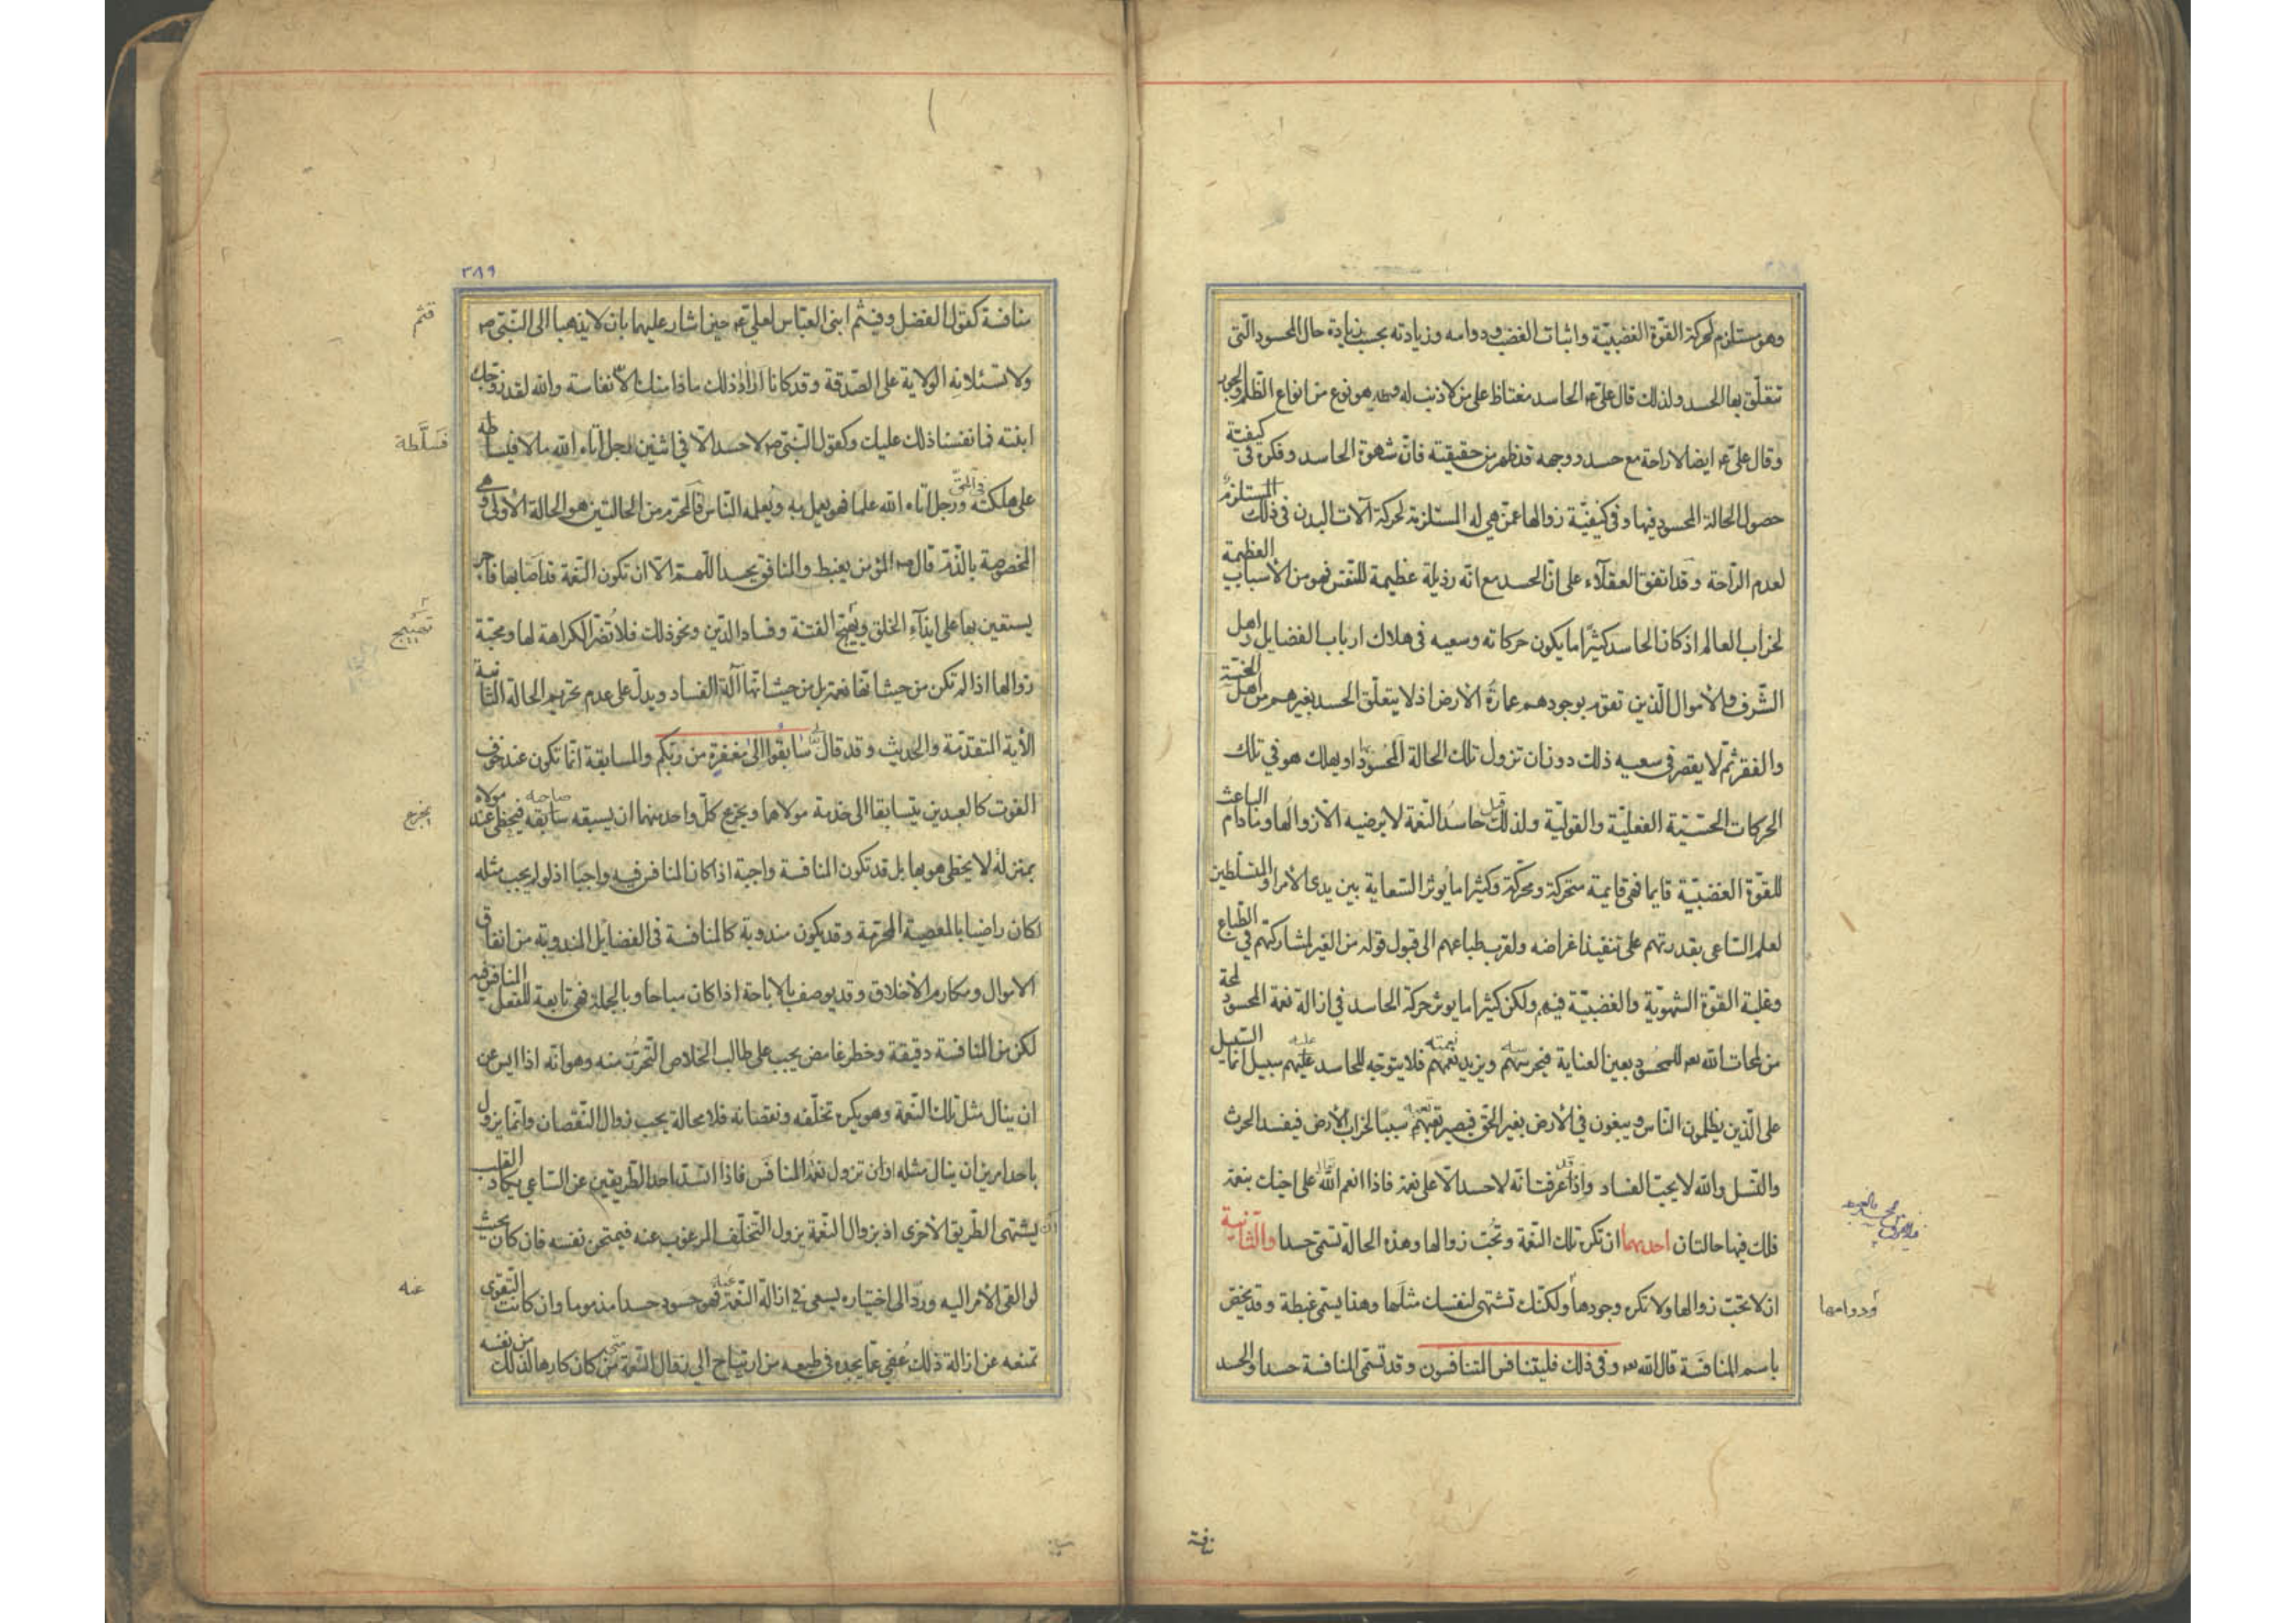 وهو مستلزم لحركة القوّة الغضبيّة واثبات الغضب ودوامه وزيادته بحسب زيادة حال المحسود الّتى
تتعلّق بها الحسد ولذلك قال علىّ ع الحاسد مغتاظ على من لا ذنب له هو نوع من انواع الظلم والجور
وقال علىّ ع ايضا لا راحة مع حسد ووجهه قد ظهر من حقيقيته فانّ شهوة الحاسد وفكره فى كيفيّة
حصول الحالة المحسود فيها وفى كيفيّة زوالها عمّن هى له المستلزمة لحركة آلات البدن فى ذلك المستلزم
لعدم الرّاحة وقد اتفق العقلآء على انّ الحسد مع انّه رذيلة عظيمة للنّفس فهو من الأسباب العظيمة
لخراب العالم اذ كان الحاسد كثيرًا ما يكون حركاته وسعيه فى هلاك ارباب الفضايل واهل
الشّرف والأموال الّذين تقوم بوجودهم عمارة الأرض اذ لا يتعلّق الحسد بغيرهم من اهل الخسّة
والفقر ثم لا يقصر فى سعيه ذلك دون ان تزول تلك الحالة المحسود او يهلك هو في تلك
الحركات الحسّيّة الفعليّة والقوليّة ولذلك قيل حاسد النّعمة لا يرضيه الّا زوالها وما دام الباعث
للقوّة الغضبيّة قايما فهى قايمة متحركة ومحرّكة وكثيرا ما يوثر السّعاية بين يدى الأمراء والمتسلّطين
لعلم السّاعى بقدرتهم على تنفيذ اغراضه ولقرب طباعهم الى قبول قوله من الغير لمشاركتهم في الطّباع
وغلبة القوّة الشهويّة والغضبيّة فيهم ولكن كثيرا ما يوثر حركة الحاسد في ازالة نعمة المحسود لمحة
من لمحات الله تعالى للمحسود بعين العناية فيحرسهم ويزيد نعمهم فلا يتوجّه للحاسد عليهم سبيل انّما السّبيل
على الّذين يظلمون النّاس ويبغون في الأرض بغير الحقّ فيصير سببًا لخراب الأرض فيفسد الحرث
والنّسل والله لا يحبّ الفساد واذا عرفت انّه لا حسد الّا على نعمة فاذا انعم الله تعالى على اخيك بنعمة
فلك فيها حالتان احديهما ان تكره تلك النّعمة وتحبّ زوالها وهذه الحالة تسمّى حسدا والثّانية
ان لا تحبّ زوالها ولا تكره وجودها ولكنّك تشتهى لنفسك مثلها وهذا يسمّى غبطة وقد يخصّ
ودوامها
باسم المنافسة قال الله تعالى وفى ذلك فليتنافس المتنافسون وقد تسمّى المنافسة حسدا والحسد
٣٨٩
منافسة كقول الفضل وقثم ابنى العبّاس لعلىّ ع حين اشار عليهما بان لا يذهبا الى النّبىّ ص
قثم
ولا يسئلانه الولاية على الصّدقة وقد كانا ارادا ذلك ما ذا منك الّا نفاسة والله لقد زوّجك
ابنته فما نفسنا ذلك عليك وكقول النّبىّ ص لا حسد الّا في اثنين رجل آتاه الله مالا فسلّطه
فسلّطه
على هلكته فى الحقّ ورجل آتاه الله علما فهو يعمل به ويعلمه النّاس فالمحرّم من الحالتين هو الحالة الأولى وهى
المخصوصة بالذّم قال ص المؤمن يغبط والمنافق يحسد اللّهمّ الّا ان تكون النّعمة قد اصابها فاجر
يستعين بها على ايذآء الخلق وتهيّج الفتنة وفساد الدّين ونحو ذلك فلا تضرّ الكراهة لها ومحبّة
تهييج
زوالها اذا لم تكن من حيث انّها نعمة بل من حيث انّها آلة الفساد ويدلّ على عدم تحريم الحالة الثّانية
الآية المتقدّمة والحديث وقد قال تعالى سابقوا الى مغفرة من ربّكم والمسابقة انّما تكون عند خوف
الفوت كالعبدين يتسابقا الى خدمة مولاهما ويجزع كلّ واحد منهما ان يسبقه صاحبه فيحظى عند مولاه
يجزع
بمنزلة لا يحظى هو بها بل قد تكون المنافسة واجبة اذا كان المنافس فيه واجبًا اذ لو لم يحب مثله
لكان راضيا بالمعصية المحرّمة وقد يكون مندوبة كالمنافسة فى الفضايل المندوبة من انفاق
الاموال ومكارم الأخلاق وقد يوصف بالاباحة اذا كان مباحا وبالجملة فهى تابعة للفعل المنافس فيه
لكن من المنافسة دقيقة وخطر غامض يجب على طالب الخلاص التّحرّز منه وهو انّه اذا ايس عن
ان ينال مثل تلك النّعمة وهو يكره تخلّفه ونقصانه فلا محالة يحب زوال النّقصان وانّما يزول
باحد امرين ان ينال مثله او ان تزول نعمة المنافس فاذا انسد احد الطّريقين عن السّاعى يكاد القلب
يشتهى الطّريق الأخرى اذ بزوال النّعمة يزول التّخلّف المرغوب عنه فيمتحن نفسه فان كان بحيث
لو القى الأمر اليه وردّ الى اختياره يسعى في ازالة النّعمة عنه فهو حسود حسدا مذموما وان كانت التّقوى
عنه
تمنعه عن ازالة ذلك عُفى عمّا يجده فى طبعه من ارتياح الى زوال النّعمة متى كان كارها لذلك من نفسه